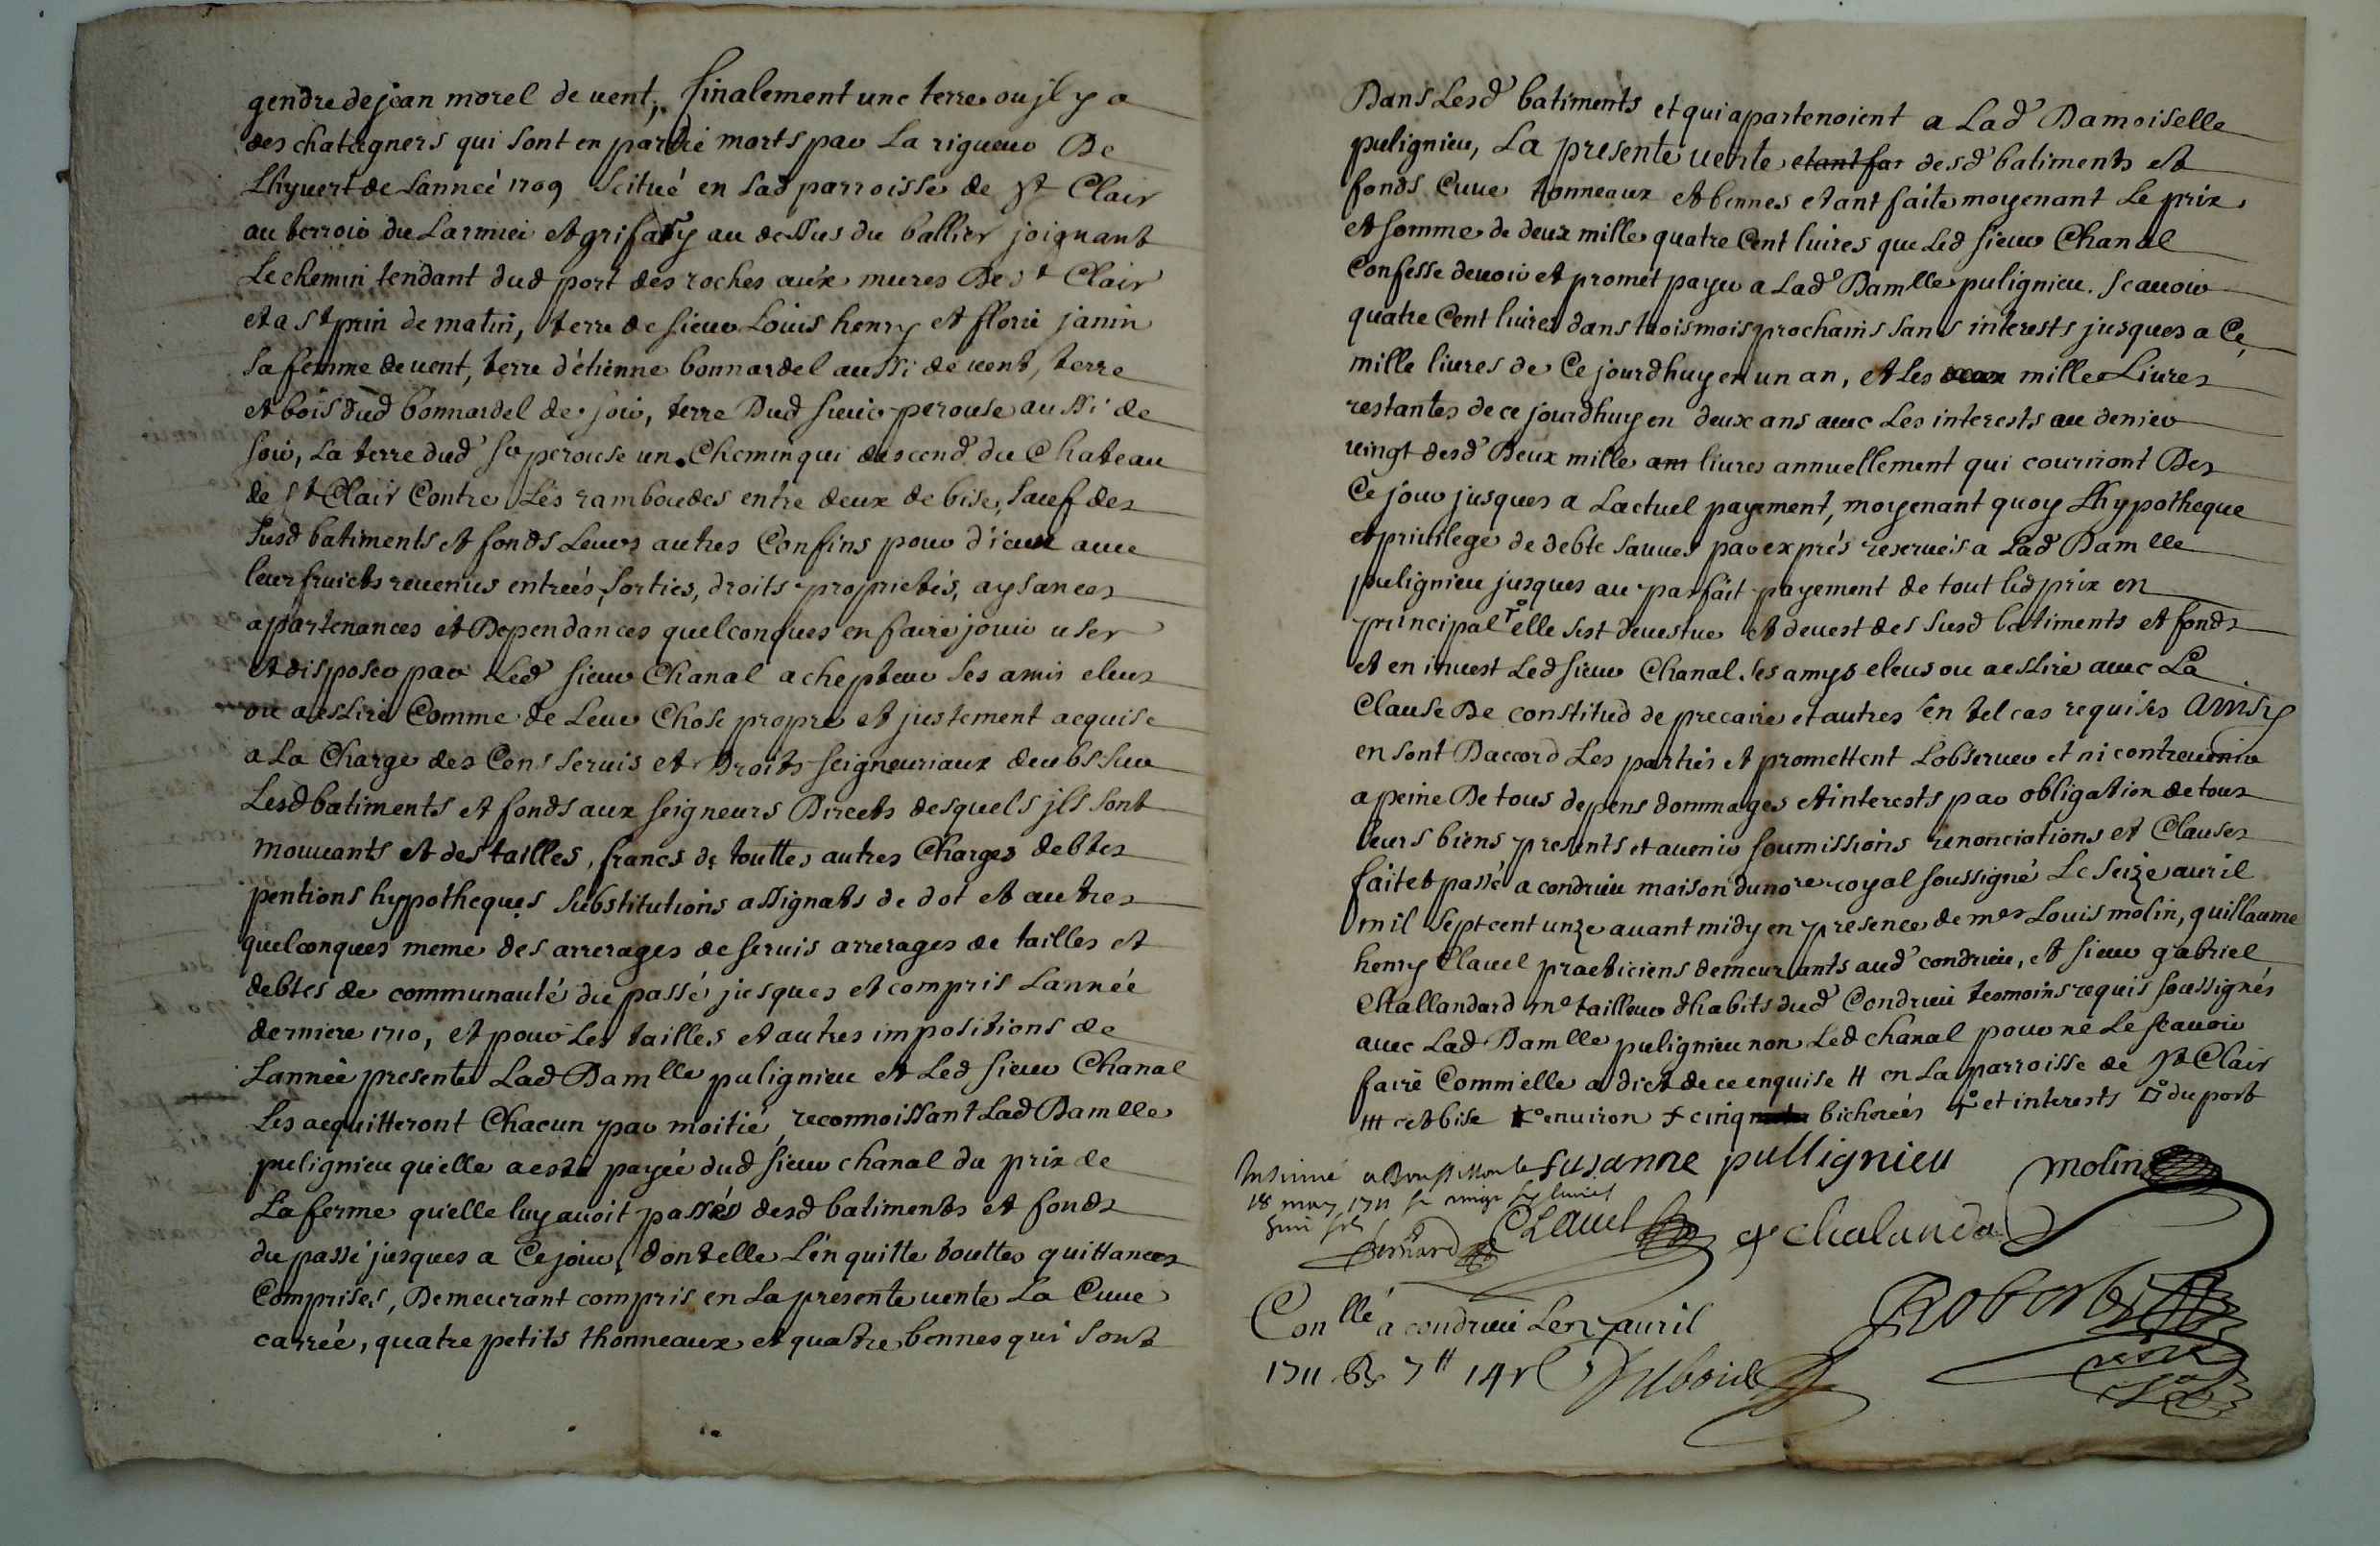 gendre de jean morel de uent, finalement une terre ou jl y a
des chatagners qui sont en partie morts par La rigueur De
Lhyuert de Lanneé 1709 scitué en Lad parroisse de St Clair
au terroir du Larmiei et grifaty au dessus du ballier joignant
Le chemin tendant dud port des roches aux mures De St Clair
et a St prin de matin, terre de sieur Louis henry et florie janin
sa femme de uent, terre d'étienne bonnardel aussi de uent, terre
et bois dud bonnardel de soir, terre Dud sieur perouse aussi de
soir, La terre dud sr perouse un Chemin qui descend du Chateau
de St Clair Contre Les ramboudes entre deux de bise, sauf des
susd batiments et fonds Leurs autres Confins pour d'iceux auec
leur fruicts reuenus entreés, sorties, droits proprietés, aysances
apartenances et Dependances quelconques en faire jouir user
et disposer par Led sieur Chanal achepteur ses amis eleus
ou a eslire Comme de Leur Chose propre et justement acquise
a La Charge des Cens seruis et Droits seigneuriaux deubs sur
Lesd batiments et fonds aux seigneurs Directs desquels jls sont
mouuants et des tailles, francs de touttes autres Charges debtes
pentions hypotheques substitutions assignats de dot et autres
quelconques meme des arrerages de seruis arrerages de tailles et
debtes de communauté du passé jusques et compris Lannée
derniere 1710, et pour Les tailles et autres impositions de
Lanneè presente Lad Damlle pulignieu et Led sieur Chanal
Les acquitteront Chacun par moitié, reconnoissant Lad Damlle
pulignieu quelle a esté payée dud sieur chanal du prix de
La ferme qu'elle luy auoit passés desd batiments et fonds
du passé jusques a Ce jour, dont elle L'en quitte touttes quittances
Comprises, Demeurant compris en La presente uente La Cuue
carrée, quatre petits thonneaux et quatre bennes qui sont
Dans Lesd batiments et qui apartenoient a Lad Damoiselle
pulignieu, La presente uente etant fai desd batiments et
fonds Cuue tonneaux et bennes etant faite moyenant Le prix
et somme de deux mille quatre Cent liures que Led sieur Chanal
Confesse deuoir et promet payer a Lad Damlle pulignieu. scauoir
quatre Cent liures dans trois mois prochains sans interests jusques a Ce,
mille liures de Ce jourdhuy en un an, et Les mille Liures
restantes de ce jourdhuy en deux ans auec Les interests au denier
uingt desd Deux mille liures annuellement qui courront Des
Ce jour jusques a Lactuel payement, moyenant quoy Lhypotheque
et priuilege de debte sauues par exprés reserués a Lad Damlle
pulignieu jusques au parfait payement de tout led prix en
principal elle sest deuestue et deuest des susd batiments et fonds
et en inuest Led sieur Chanal. ses amys eleus ou a eslire auec La
Clause De constitud de precaire et autres en tel cas requises ainsy
en sont Daccord Les parties et promettent Lobseruer et ni contreuenir
a peine De tous depens dommages et interests par obligation de tous
leurs biens presents et auenir soumissions renonciations et Clauses
fait et passé a condrieu maison du nore royal soussigné Le seize auril
mil sept cent unze auant midy en presence de mes Louis molin, guillaume
henry Clauel practiciens demeurants aud condrieu, et sieur gabriel
Challandard me tailleur dhabits dud Condrieu tesmoins requis soussignés
auec Lad Damlle pulignieu non Led chanal pour ne Le scauoir
faire Comm'elle a dict de ce enquise # en La parroisse de St Clair
et bise enuiron cinq bichereés et interests du port
Insinué a Le susanne pullignieu molin
18 may 1711
Bernard Clauel chalanda
Conllé a condrieu Le auril Robert
1711 R 7# 14 s Duboid